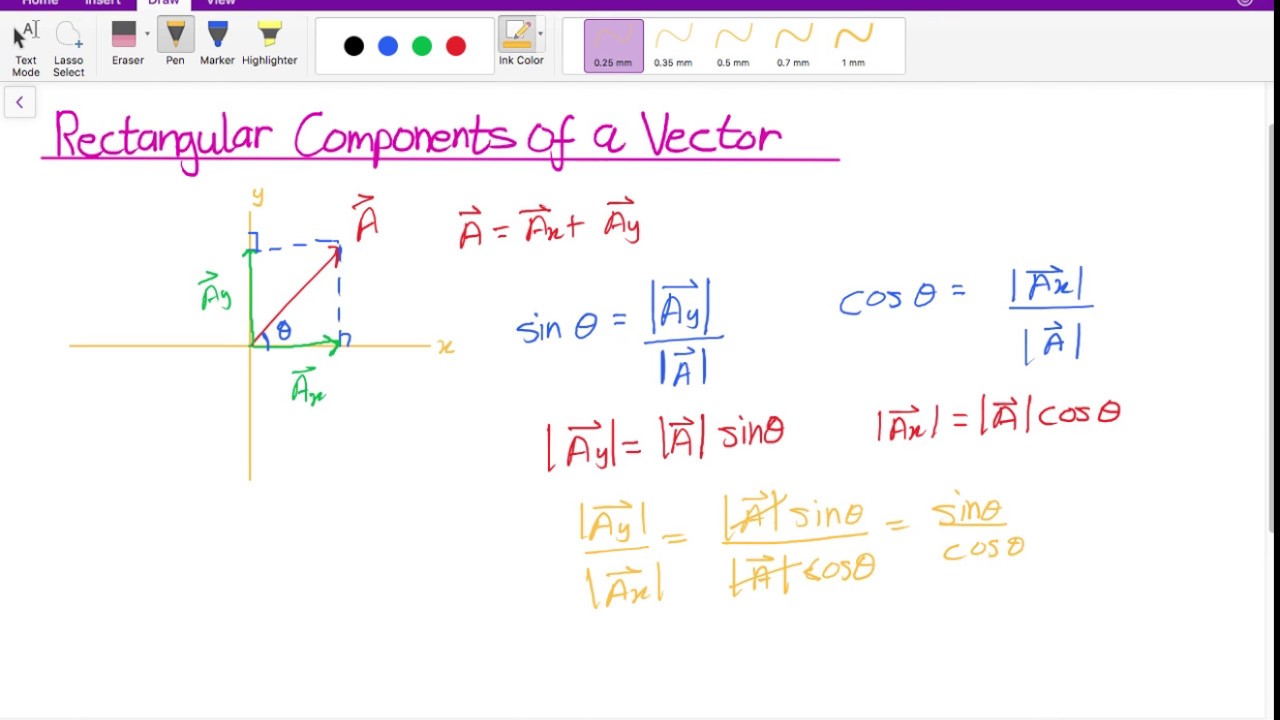 Home Insert Draw View
Text Mode
Lasso Select
Eraser
Pen
Marker
Highlighter
Ink Color
0.25 mm
0.35 mm
0.5 mm
0.7 mm
1 mm
Rectangular Components of a Vector
y
A⃗
A⃗y
θ
x
A⃗x
A⃗ = A⃗x + A⃗y
sin θ = |A⃗y| / |A⃗|
cos θ = |A⃗x| / |A⃗|
|A⃗y| = |A⃗| sinθ
|A⃗x| = |A⃗| cosθ
|A⃗y| / |A⃗x| = |A⃗| sinθ / |A⃗| cosθ = sinθ / cosθ